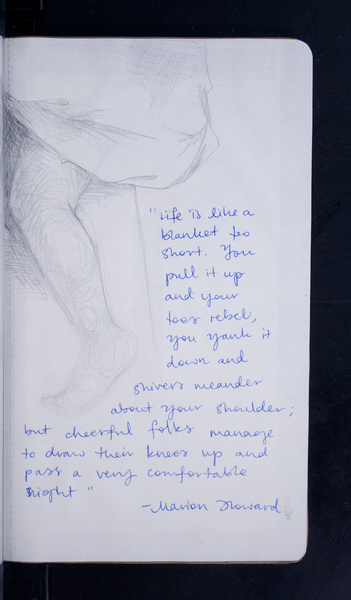 "Life is like a
blanket too
short. You
pull it up
and your
toes rebel,
you yank it
down and
shivers meander
about your shoulder;
but cheerful folks manage
to draw their knees up and
pass a very comfortable
night"
-Marion Howard